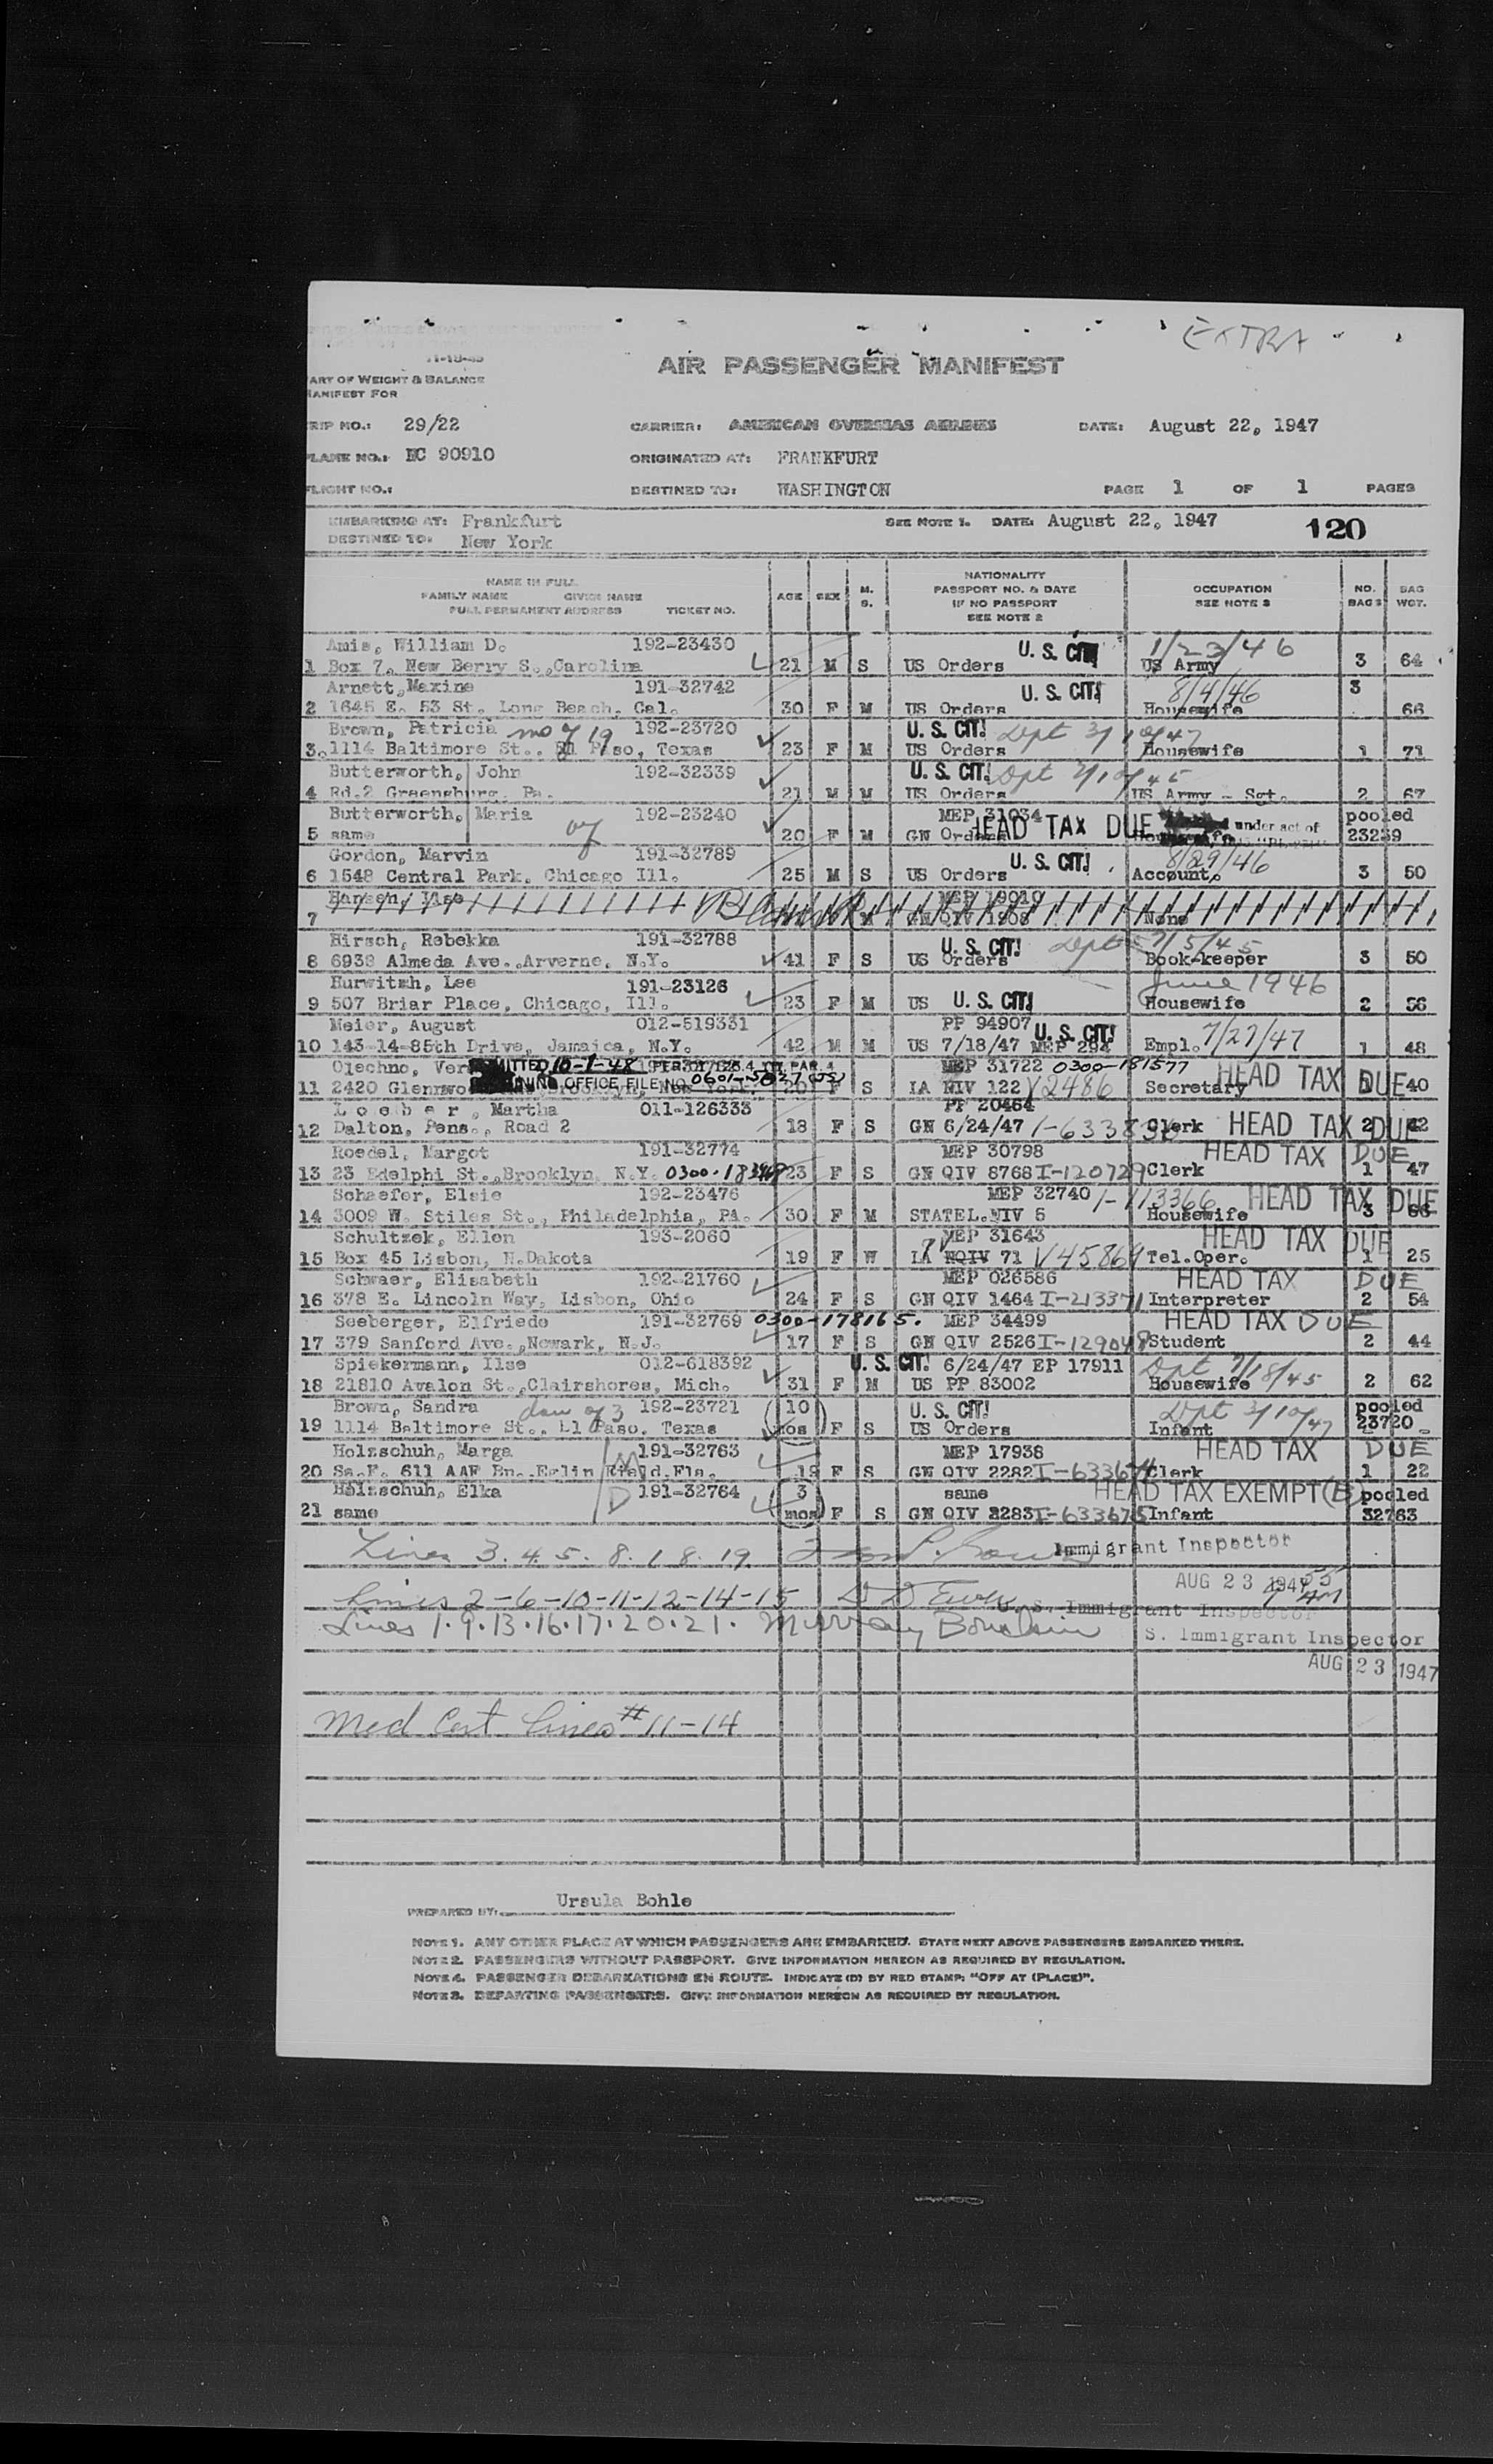 EXTRA
11-18-45
AIR PASSENGER MANIFEST
ART OF WEIGHT & BALANCE
ANIFEST FOR
RIP NO.: 29/22 CARRIER: AMERICAN OVERSEAS AIRLINES DATE: August 22, 1947
LANE NO.: NC 90910 ORIGINATED AT: FRANKFURT
FLIGHT NO.: DESTINED TO: WASHINGTON PAGE 1 OF 1 PAGES
EMBARKING AT: Frankfurt SEE NOTE 1. DATE: August 22, 1947 120
DESTINED TO: New York
NAME IN FULL
FAMILY NAME GIVEN NAME
FULL PERMANENT ADDRESS TICKET NO. AGE SEX M. S. NATIONALITY PASSPORT NO. & DATE IF NO PASSPORT SEE NOTE 2 OCCUPATION SEE NOTE 2 NO. BAGS BAG WGT.
Amis, William D. 192-23430 U. S. CIT. 1/23/46
1 Box 7, New Berry S.,Carolina 21 M S US Orders US Army 3 64
Arnett,Maxine 191-32742 U. S. CIT. 8/4/46 3
2 1645 E. 53 St. Long Beach, Cal. 30 F M US Orders Housewife 66
Brown, Patricia mo of 19 192-23720 U. S. CIT. Dept
3. 1114 Baltimore St., El Paso, Texas 23 F M US Orders Housewife 1 71
Butterworth, John 192-32339 U. S. CIT. Dpt
4 Rd.2 Greensburg, Pa. 21 M M US Orders US Army - Sgt. 2 67
Butterworth, Maria 192-23240 MEP 31034 HEAD TAX DUE under act of pooled
5 same 20 F M GN Orders 23239
Gordon, Marvin 191-32789 U. S. CIT. 8/29/46
6 1548 Central Park, Chicago Ill. 25 M S US Orders Account. 3 50
7 None
Hirsch, Rebekka 191-32788 U. S. CIT. Dept 7/5/45
8 6938 Almeda Ave.,Arverne, N.Y. 41 F S US Orders Book-keeper 3 50
Hurwitzh, Lee 191-23126 June 1946
9 507 Briar Place, Chicago, Ill. 23 F M US U. S. CIT. Housewife 2 56
Meier, August 012-519331 PP 94907 U. S. CIT. 7/27/47
10 143-14-85th Drive, Jamaica, N.Y. 42 M M US 7/18/47 MEP 294 Empl. 1 48
Olechno, Ver MITTED 10-1-48 MEP 31722 0300-181577 HEAD TAX DUE
11 2420 Glenwoo NING OFFICE FILE NO. F S LA NIV 122 V2486 Secretary 40
L o e b e r , Martha 011-126333 PP 20464
12 Dalton, Penn., Road 2 18 F S GN 6/24/47 Clerk HEAD TAX DUE 2 42
Roedel, Margot 191-32774 MEP 30798 HEAD TAX DUE
13 23 Edelphi St.,Brooklyn, N.Y. 23 F S GN QIV 8768 I-120729 Clerk 1 47
Schaefer, Elsie 192-23476 MEP 32740 I-113366 HEAD TAX DUE
14 3009 W. Stiles St., Philadelphia, PA. 30 F M STATEL.NIV 5 Housewife 3
Schultzek, Ellen 193-2060 MEP 31643 HEAD TAX DUE
15 Box 45 Lisbon, N.Dakota 19 F W LA 71 V45869 Tel.Oper. 1 25
Schwaer, Elisabeth 192-21760 MEP 026586 HEAD TAX DUE
16 378 E. Lincoln Way, Lisbon, Ohio 24 F S GN QIV 1464 I-213371 Interpreter 2 54
Seeberger, Elfriede 191-32769 0300-178165. MEP 34499 HEAD TAX DUE
17 379 Sanford Ave.,Newark, N.J. 17 F S GN QIV 2526 I-129048 Student 2 44
Spiekermann, Ilse 012-618392 U. S. CIT. 6/24/47 EP 17911 Dpt 7/18/45
18 21810 Avalon St.,Clairshores, Mich. 31 F M US PP 83002 Housewife 2 62
Brown, Sandra dau of 3 192-23721 10 U. S. CIT. Dpt pooled
19 1114 Baltimore St., El Paso, Texas mos F S US Orders Infant 23720
Holzschuh, Marga M 191-32763 MEP 17938 HEAD TAX DUE
20 Sq.F. 611 AAF Bn.,Eglin Field,Fla. 19 F S GN QIV 2282 I-633674 Clerk 1 22
Holzschuh, Elka D 191-32764 3 same HEAD TAX EXEMPT (B) pooled
21 same mos F S GN QIV 2283 I-633675 Infant 32763
Lines 3. 4. 5. 8. 18. 19. Immigrant Inspector
AUG 23 1947
Lines 2-6-10-11-12-14-15 U. S. Immigrant Inspector
Lines 1.9.13.16.17.20.21. Murray S. Immigrant Inspector
AUG 23 1947
Med Cert Lines # 11-14
PREPARED BY: Ursula Bohle
NOTE 1. ANY OTHER PLACE AT WHICH PASSENGERS ARE EMBARKED. STATE NEXT ABOVE PASSENGERS EMBARKED THERE.
NOTE 2. PASSENGERS WITHOUT PASSPORT. GIVE INFORMATION HEREON AS REQUIRED BY REGULATION.
NOTE 4. PASSENGER DEBARKATIONS EN ROUTE. INDICATE (D) BY RED STAMP: "OFF AT (PLACE)".
NOTE 3. DEPARTING PASSENGERS. GIVE INFORMATION HEREON AS REQUIRED BY REGULATION.